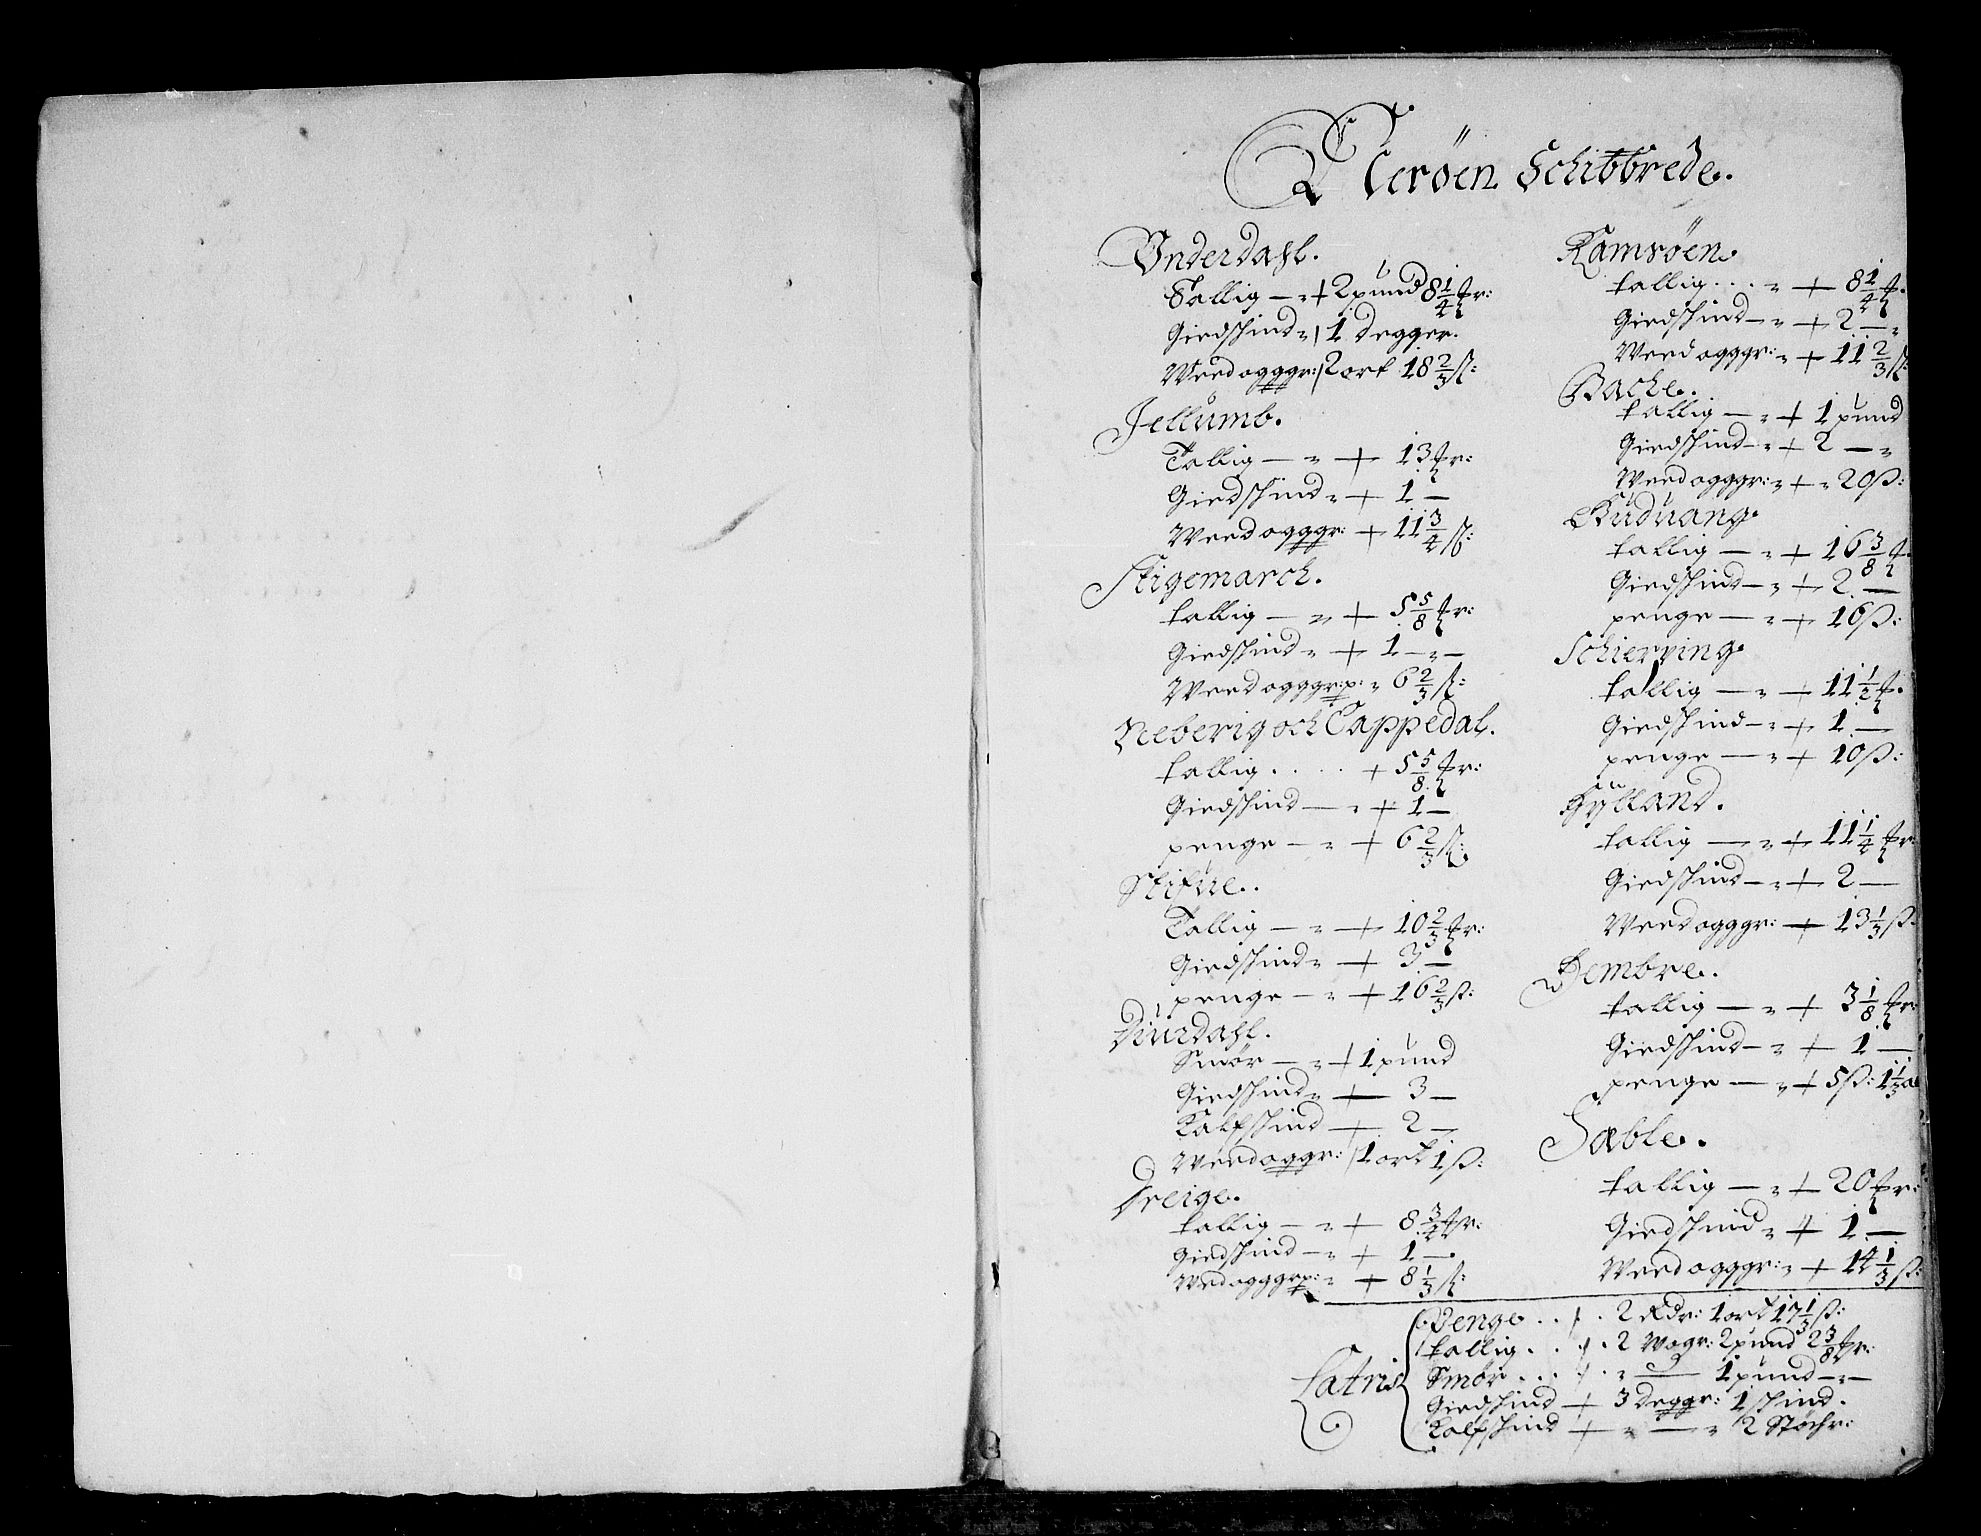 Herøen Schibbrede.
Vnderdahl.
Tallig — „ + 2 pund 8 1/4 mr:
Giedschind „ 1 degger.
Weedogggr: 2 ort 18 2/3 ß:
Jellumb.
Tallig — „ + 13 mr:
Giedschind „ + 1 —
Weedogggr: + 11 3/4 ß:
Stigemarch.
tallig — „ + 5 5/8 mr:
Giedschind „ + 1 — „ —
Weedogggrp: „ 6 2/3 ß:
Neberig och Tappedal.
tallig . . . . + 5 5/8 mr:
Giedschind — „ + 1 —
penge — „ + 6 2/3 ß:
Stifue.
Tallig — „ + 10 2/3 mr:
Giedschind „ + 3 —
penge — „ + 16 2/3 ß:
Diurdahl.
Smör — „ + 1 pund
Giedschind „ — 3 —
Kalfschind — 2 —
Weedoggr: 1 ort 1 ß:
Dreige.
tallig — „ + 8 3/4 mr:
Giedschind — „ + 1 — .
Wedogggrp: „ + 8 1/3 ß:
Ramsøen.
tallig . . . „ + 8 1/4 m.
Giedschind — „ + 2 — „
Weedogggr: „ + 11 2/3 ß.
Bache.
tallig — „ + 1 pund
Giedschind — „ + 2 — „
Weedogggr: „ + „ 20 ß:
Buduang.
tallig — „ + 16 3/8 m.
Giedschind — „ + 2. —
penge — „ + 16 ß:
Schierving.
tallig — „ + 11 1/2 m.
Giedschind — „ + 1 —
penge — „ + 10 ß:
Hylland.
tallig — „ + 11 1/4 mr:
Giedschind — „ + 2 —
Weedogggr: + 13 1/3 ß.
Dembre.
tallig — „ + 3 1/8 mr:
Giedschind — „ + 1 —
penge — „ + 5 ß: 1 1/3
Sæble.
tallig — „ + 20 mr:
Giedschind „ + 1 —
Weedogggr: „ + 14 1/3 ß:
Latris
Penge . . + . 2 Rdr: 1 ort 17 1/3 ß:
tallig . . + . 2 Wogr: 2 pund 2 3/8 mr:
Smör . . . + . „ — 1 pund — „ —
Giedschind + 3 deggr: 1 schind.
Kalfschind + „ — „ 2 Støchr: